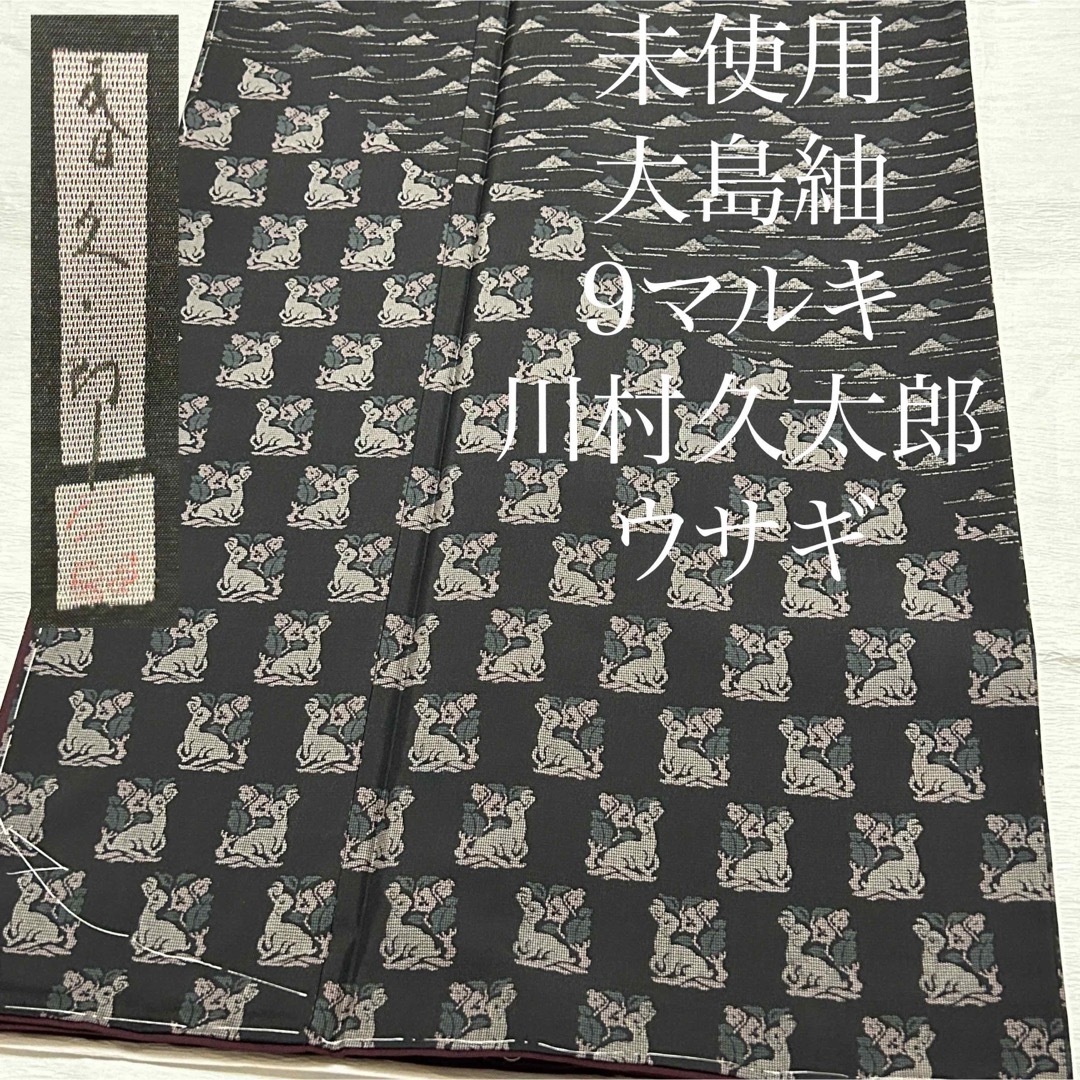 未使用
大島紬
9マルキ
川村久太郎
ウサギ